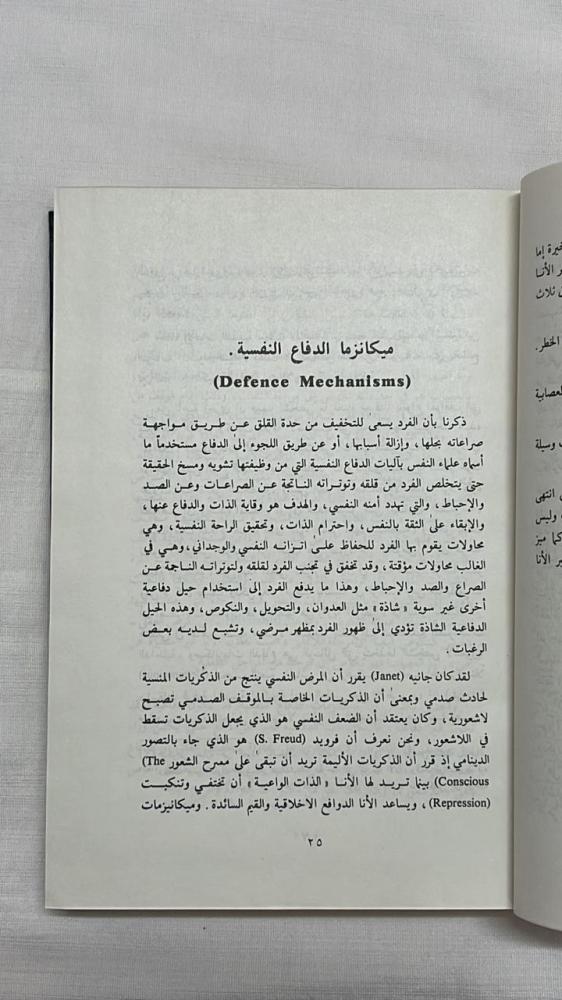 ميكانزما الدفاع النفسية .
(Defence Mechanisms)
ذكرنا بأن الفرد يسعىٰ للتخفيف من حدة القلق عن طريق مواجهة
صراعاته بحلها، وإزالة أسبابها، أو عن طريق اللجوء إلىٰ الدفاع مستخدماً ما
أسماه علماء النفس بآليات الدفاع النفسية التي من وظيفتها تشويه ومسخ الحقيقة
حتىٰ يتخلص الفرد من قلقه وتوتراته الناتجة عن الصراعات وعن الصد
والإحباط، والتي تهدد أمنه النفسي، والهدف هو وقاية الذات والدفاع عنها،
والإبقاء علىٰ الثقة بالنفس، واحترام الذات، وتحقيق الراحة النفسية، وهي
محاولات يقوم بها الفرد للحفاظ علىٰ اتزانه النفسي والوجداني، وهي في
الغالب محاولات مؤقتة، وقد تخفق في تجنب الفرد لقلقه ولتوتراته الناجمة عن
الصراع والصد والإحباط، وهذا ما يدفع الفرد إلىٰ استخدام حيل دفاعية
أخرىٰ غير سوية «شاذة» مثل العدوان، والتحويل، والنكوص، وهذه الحيل
الدفاعية الشاذة تؤدي إلىٰ ظهور الفرد بمظهر مرضي، وتشبع لديه بعض
الرغبات .
لقد كان جانيه (Janet) يقرر أن المرض النفسي ينتج من الذكريات المنسية
لحادث صدمي وبمعنىٰ أن الذكريات الخاصة بالموقف الصدمي تصبح
لاشعورية، وكان يعتقد أن الضعف النفسي هو الذي يجعل الذكريات تسقط
في اللاشعور، ونحن نعرف أن فرويد (S. Freud) هو الذي جاء بالتصور
الدينامي إذ قرر أن الذكريات الأليمة تريد أن تبقىٰ علىٰ مسرح الشعور (The
Conscious) بينما تريد لها الأنا «الذات الواعية» أن تختفي وتنكبت
(Repression)، ويساعد الأنا الدوافع الاخلاقية والقيم السائدة . وميكانيزمات
٢٥
إما
الأنا
ثلاث
الخطر.
وسيلة
انتهى
وليس
كما ميز
الأنا